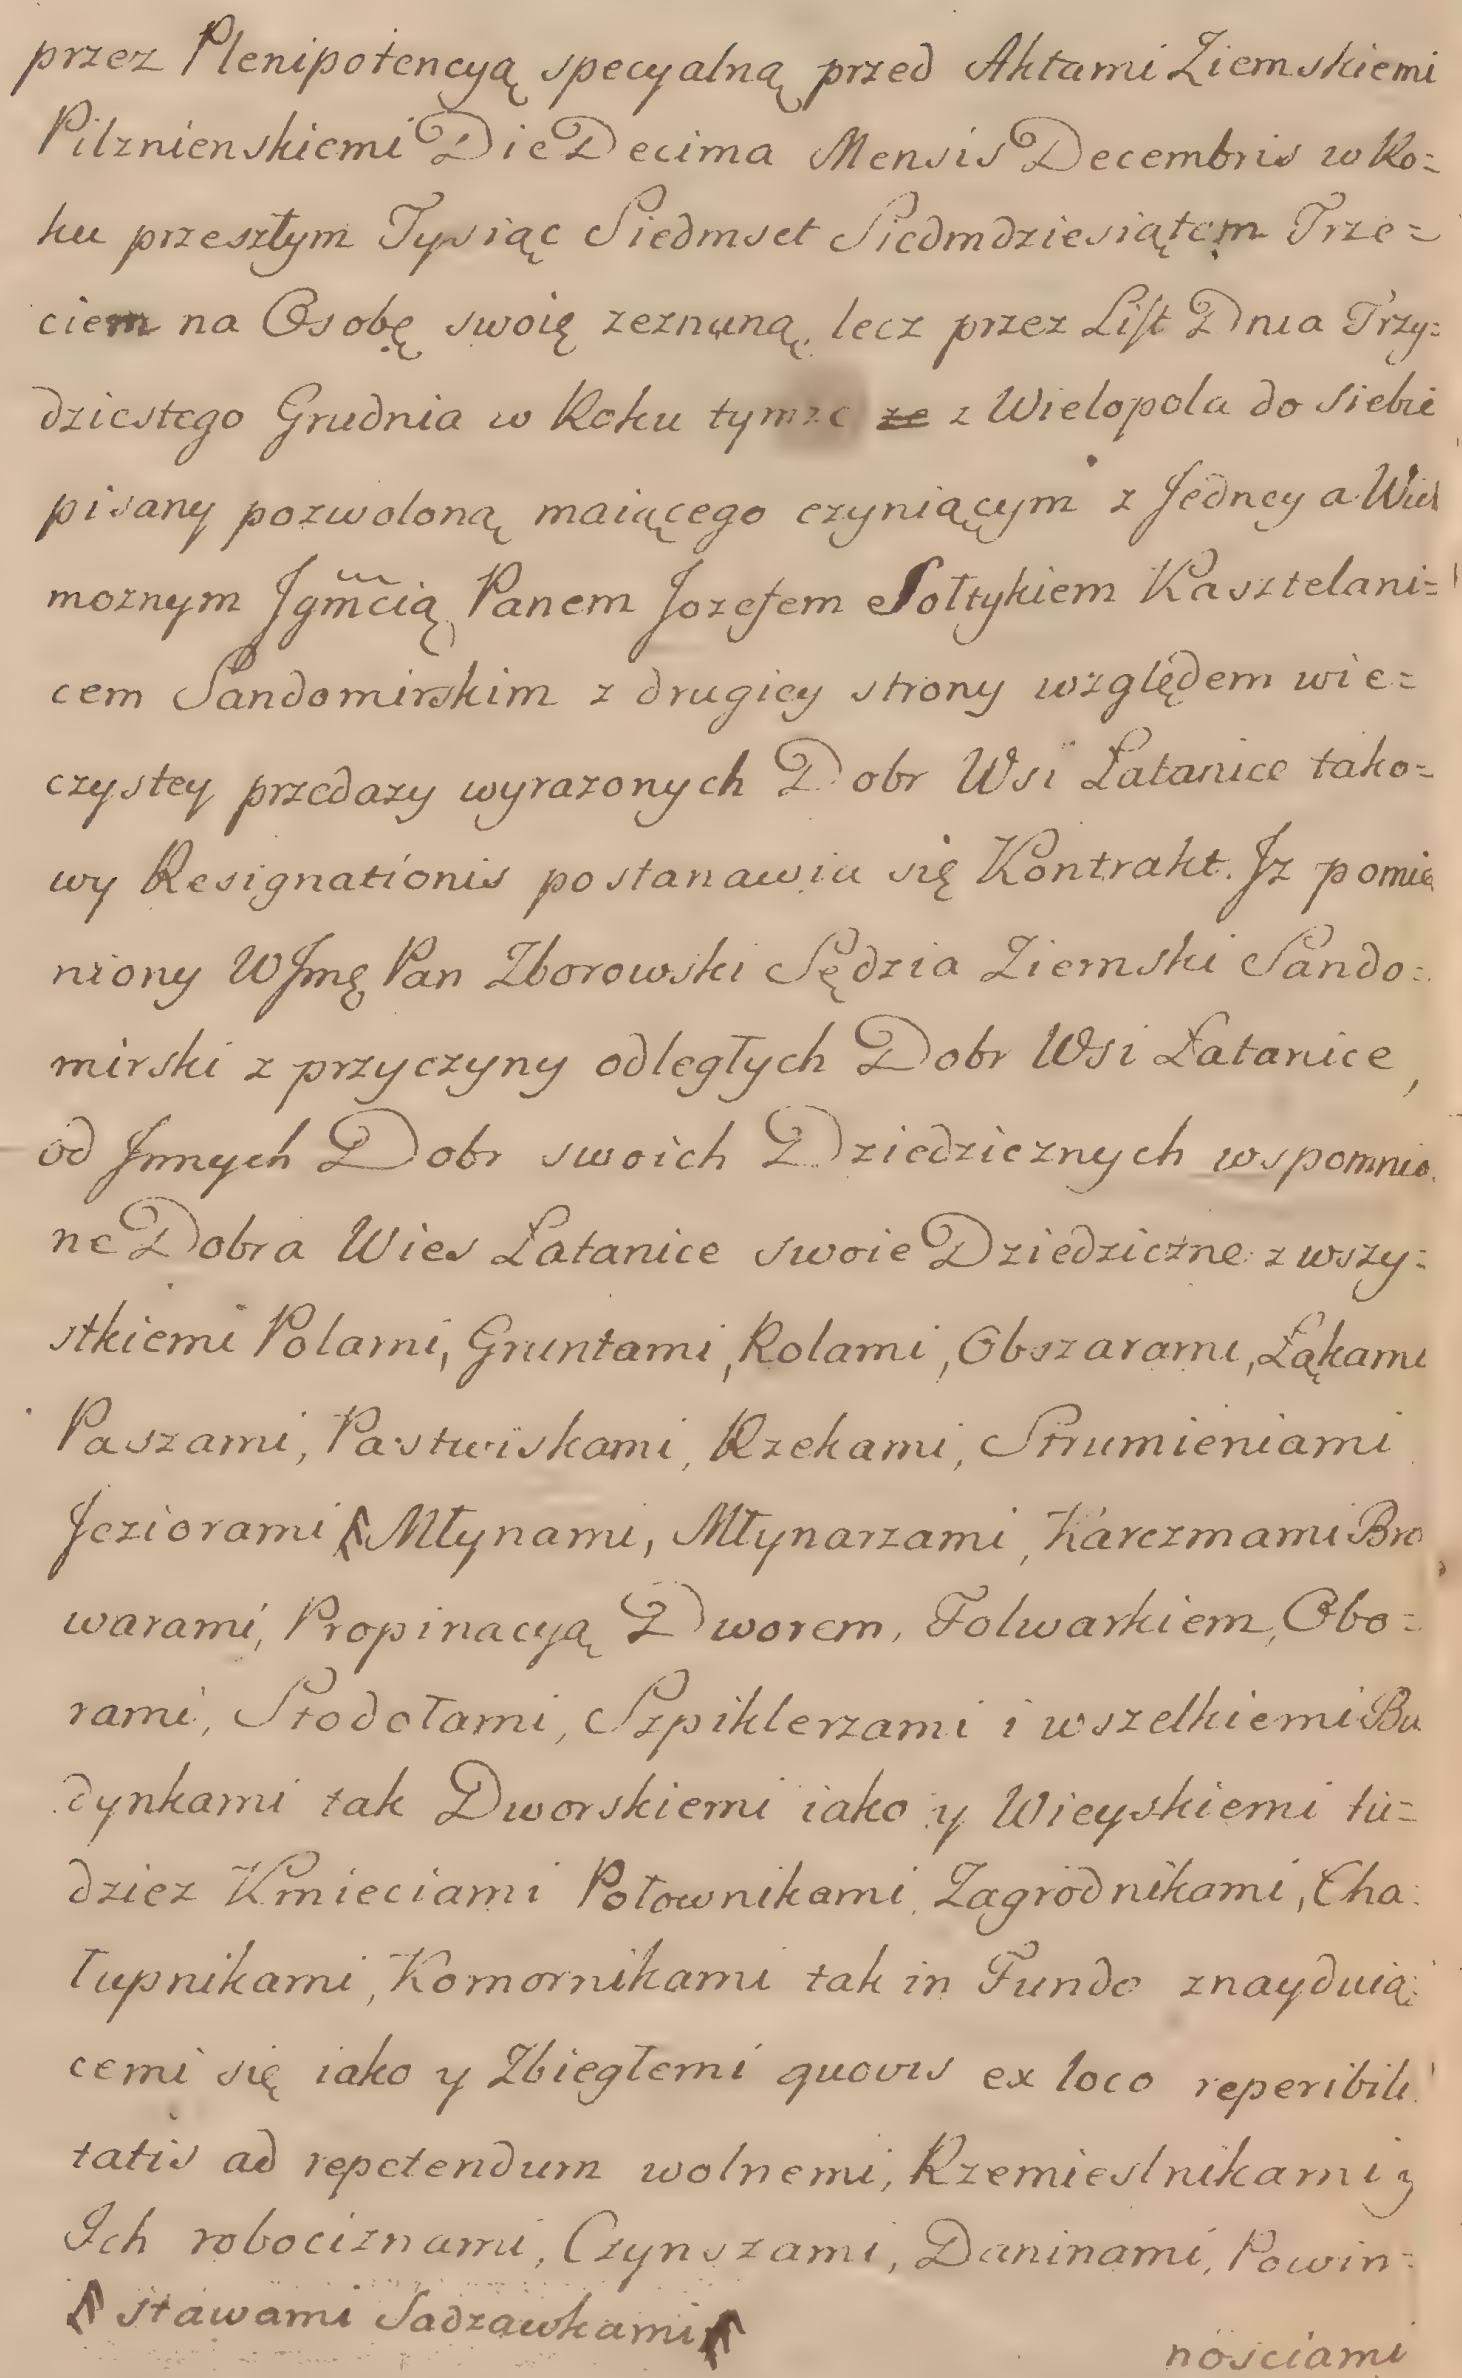 przez Plenipotencyą specyalną przed Aktami Ziemskiemi
Pilznienskiemi Die Decima Mensis Decembris w Ro=
ku przeszłym Tysiąc Siedmset Siedmdziesiątem Trze=
ciem na Osobę swoię zeznaną, lecz przez List Dnia Trzy=
dziestego Grudnia w Roku tymze z Wielopola do siebie
pisany pozwoloną maiącego czyniącym z Jedney a Wiel
moznym Jgmcią Panem Jozefem Sołtykiem Kasztelani=
cem Sandomirskim z drugiey strony względem wie=
czystey przedazy wyrazonych Dobr Wsi Łatanice tako=
wy Resignationis postanawia się Kontrakt. Jz pomie
niony WJmę Pan Zborowski Sędzia Ziemski Sando=
mirski z przyczyny odległych Dobr Wsi Łatanice,
od Jnnych Dobr swoich Dziedzicznych wspomnio
ne Dobra Wies Łatanice swoie Dziedziczne z wszy=
stkiemi Polami, Gruntami, Rolami, Obszarami, Łąkami
Paszami, Pastwiskami, Rzekami, Strumieniami
Jeziorami Młynami, Młynarzami, Karczmami Bro
warami, Propinacyą Dworem, Folwarkiem, Obo=
rami, Stodołami, Szpiklerzami i wszelkiemi Bu
dynkami tak Dworskiemi iako y Wieyskiemi tu=
dziez Kmieciami Połownikami Zagrodnikami, Cha=
łupnikami, Komornikami tak in Fundo znayduią=
cemi się iako y Zbiegłemi quovis ex loco reperibili
tatis ad repetendum wolnemi, Rzemieslnikami y
Ich robociznami, Czynszami, Daninami, Powin=
stawami Sadzawkami
nosciami